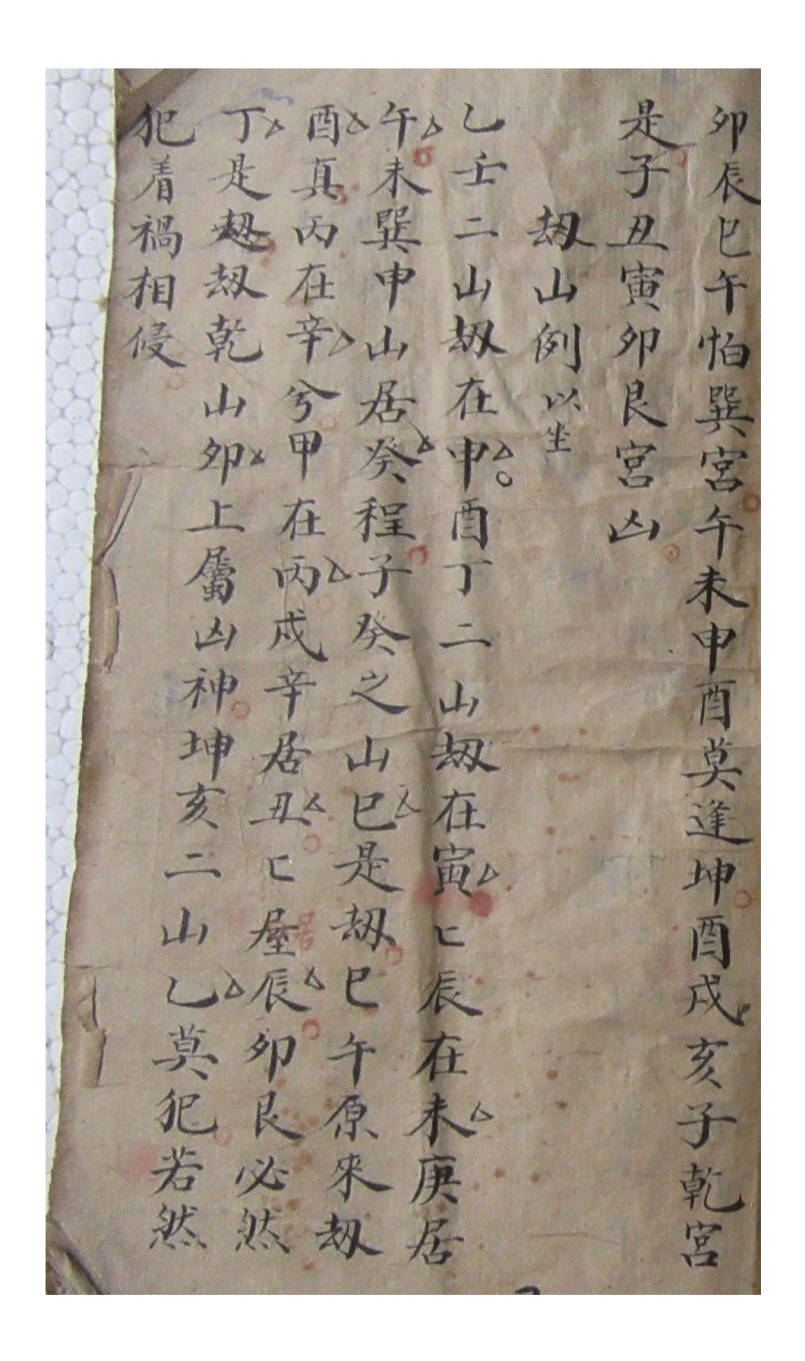 卯辰巳午怕巽宮午未申酉莫逢坤酉戌亥子乾宮
是子丑寅卯艮宮凶
刼山例以坐
乙壬二山刼在申酉丁二山刼在寅匕辰在未庚居
午未巽申山居癸程子癸之山巳是刼巳午原來刼
酉真丙在辛兮甲在丙戌辛居丑匕屋居辰卯艮必然
丁是刼刼乾山卯上屬凶神坤亥二山乙莫犯若然
犯着禍相侵